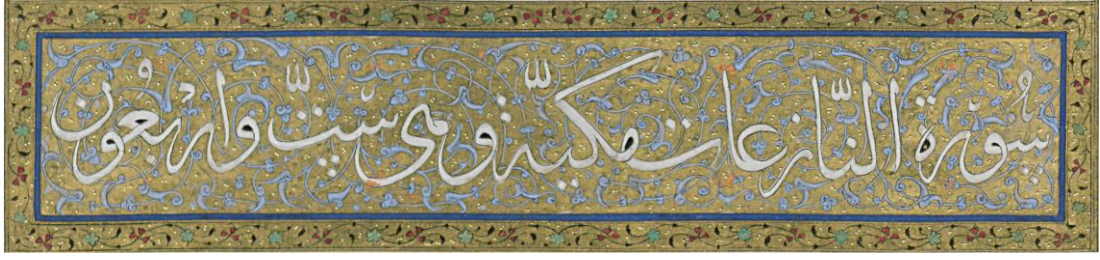 سُورَة النَّازِعات مكيّة وهي سِتّ واربعُون